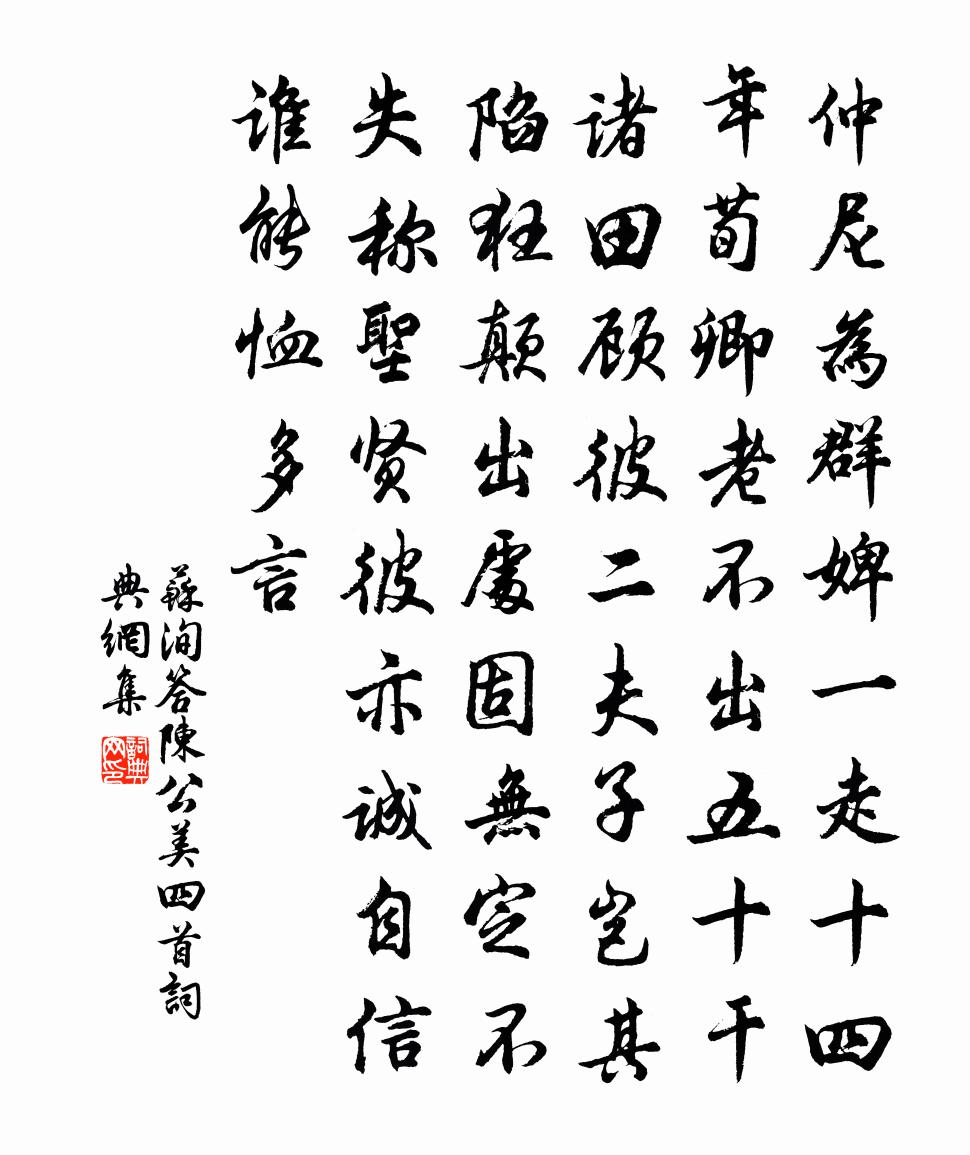 仲尼為群婢一走十四
年荀卿老不出五十干
诸田顾彼二夫子岂其
陷狂颠出處固無定不
失称聖贤彼亦诚自信
谁能恤多言
蘇洵答陳公美四首詞
典網集
詞典网印